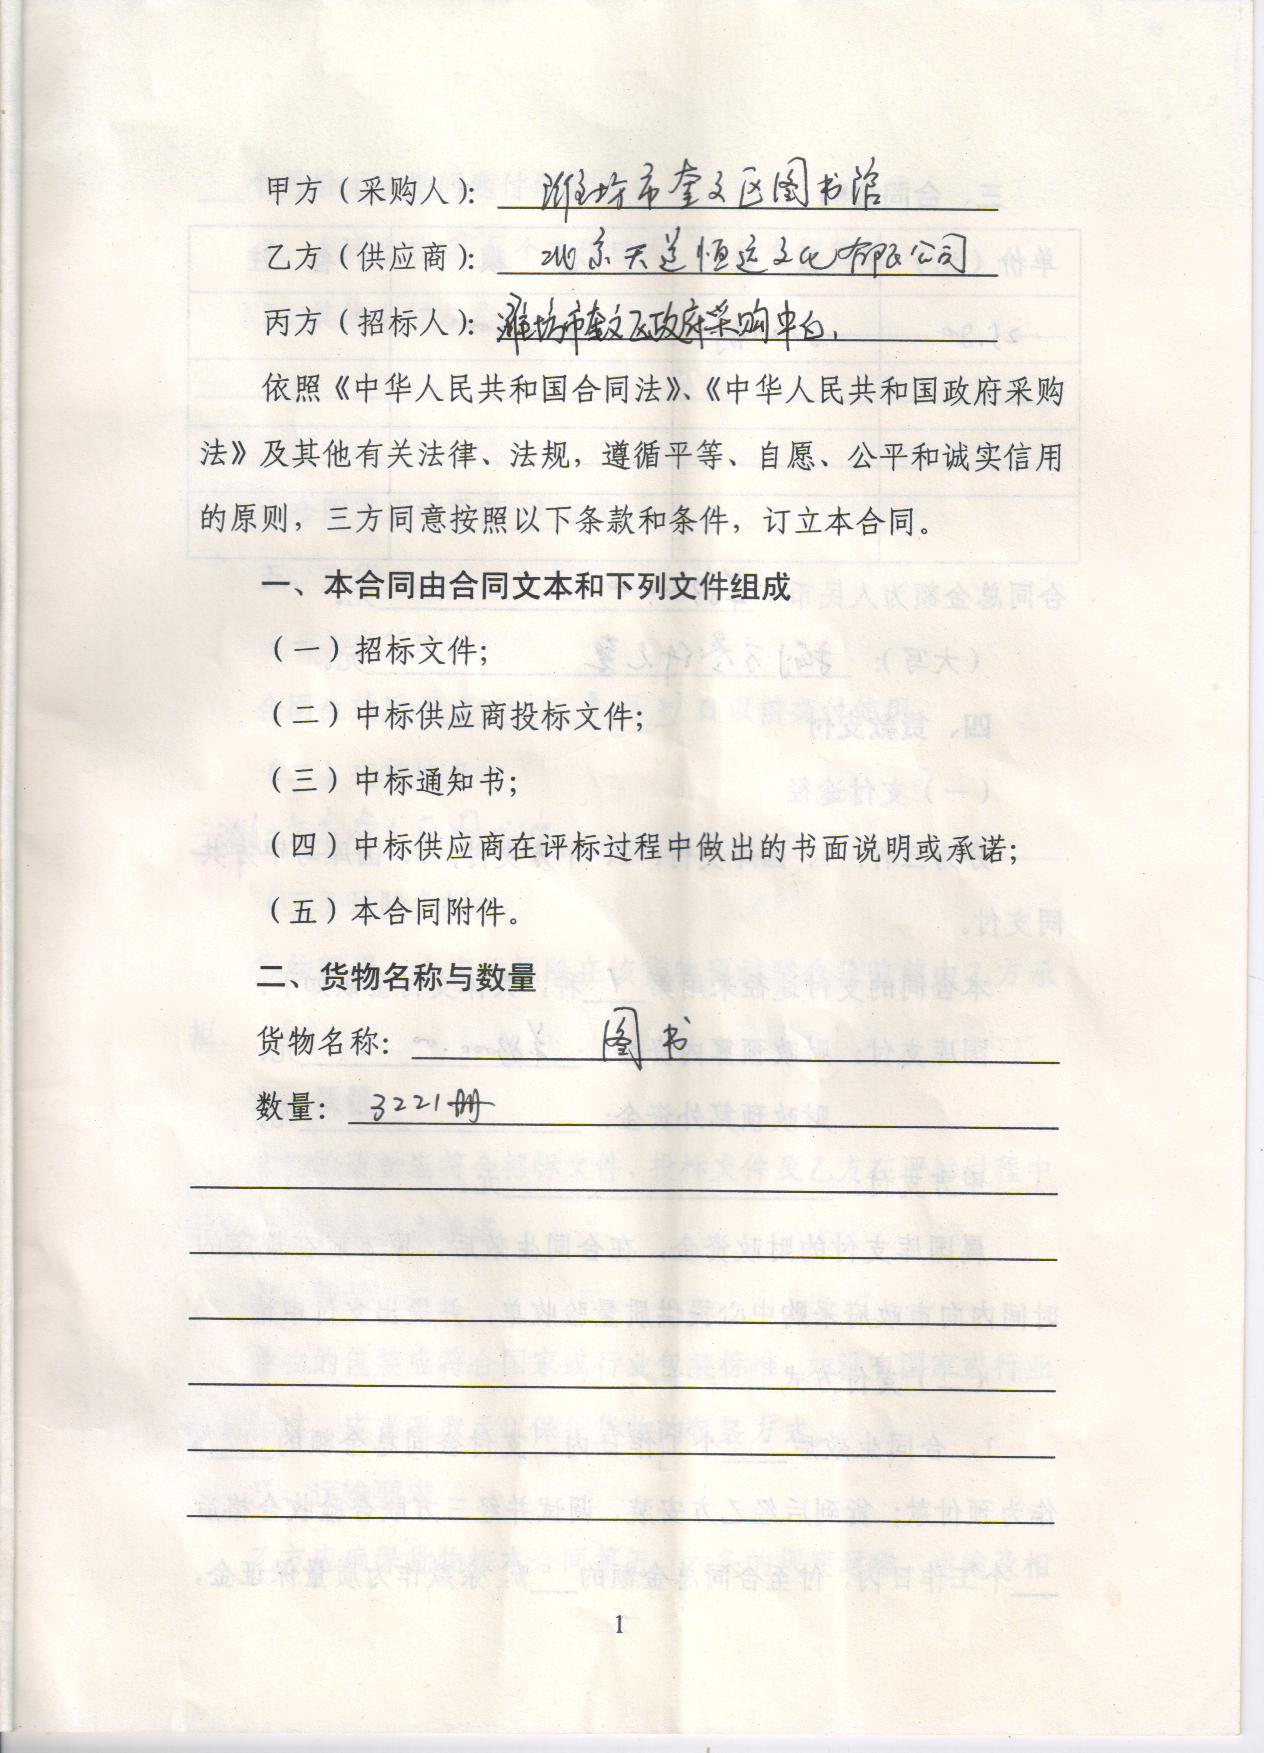 甲方（采购人）：潍坊市奎文区图书馆
乙方（供应商）：北京天道恒远文化有限公司
丙方（招标人）：潍坊市奎文区政府采购中心.
依照《中华人民共和国合同法》、《中华人民共和国政府采购
法》及其他有关法律、法规，遵循平等、自愿、公平和诚实信用
的原则，三方同意按照以下条款和条件，订立本合同。
一、本合同由合同文本和下列文件组成
（一）招标文件；
（二）中标供应商投标文件；
（三）中标通知书；
（四）中标供应商在评标过程中做出的书面说明或承诺；
（五）本合同附件。
二、货物名称与数量
货物名称：图书
数量：3221册
1